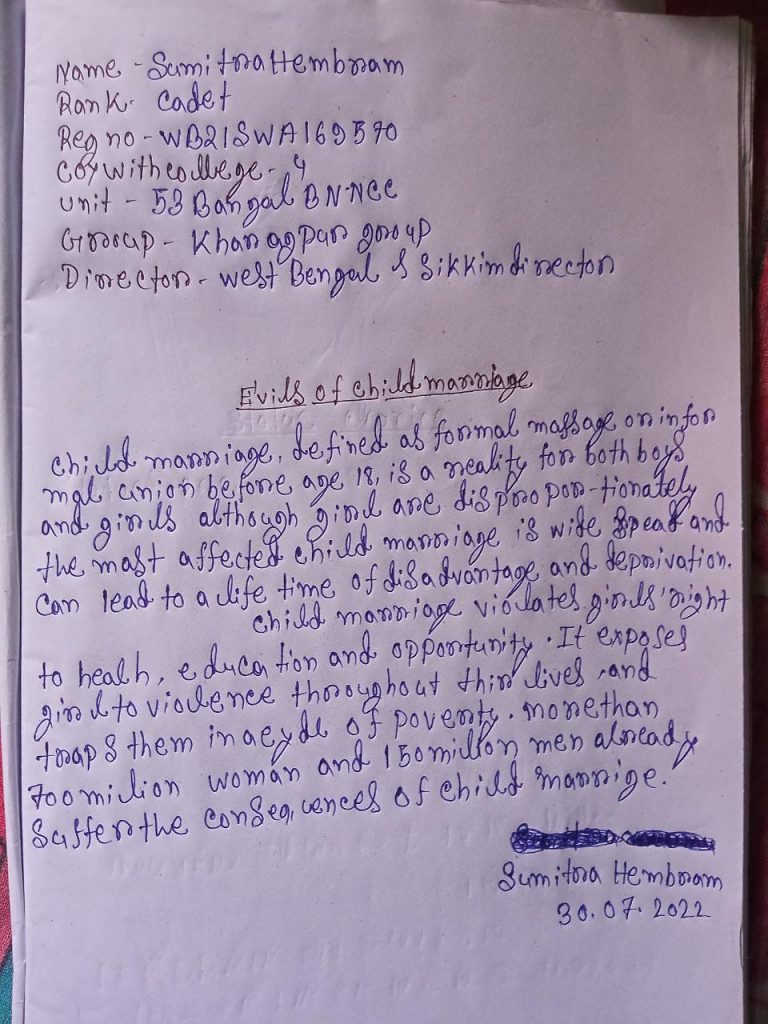 Name - Sumitra Hembram
Rank - Cadet
Reg no - WB21SWA169570
Coy with college - 4
unit - 53 Bangal BN NCC
Group - Kharagpur group
Director - west Bengal & Sikkim director
Evils of child marriage
child marriage, defined as formal massage or infor
mal union before age 18, is a reality for both boys
and girls although girl are dispropor-tionately
the mast affected child marriage is wide speaf and
Can lead to a life time of disadvantage and deprivation.
child marriage violates girls' right
to healh, education and opportunity. It exposes
girl to violence throughout thir lives, and
traps them in a cycle of poverty. more than
700 milion woman and 150 million men already
Suffer the consequences of child marrige.
Sumitra Hembram
30.07.2022